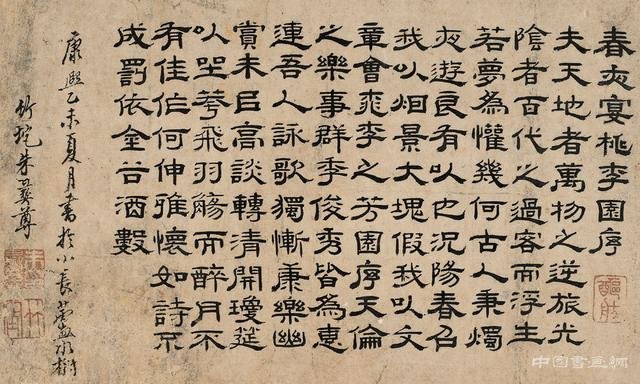 春夜宴桃李園序
夫天地者萬物之逆旅光
陰者百代之過客而浮生
若夢為懽幾何古人秉燭
夜遊良有以也況陽春召
我以烟景大塊假我以文
章會桃李之芳園序天倫
之樂事群季俊秀皆為惠
連吾人詠歌獨慚康樂幽
賞未已高談轉清開瓊筵
以坐華飛羽觴而醉月不
有佳作何伸雅懷如詩不
成罰依金谷酒數
康熙乙未夏月書於小長蘆水榭
竹垞朱彝尊
中国書画網